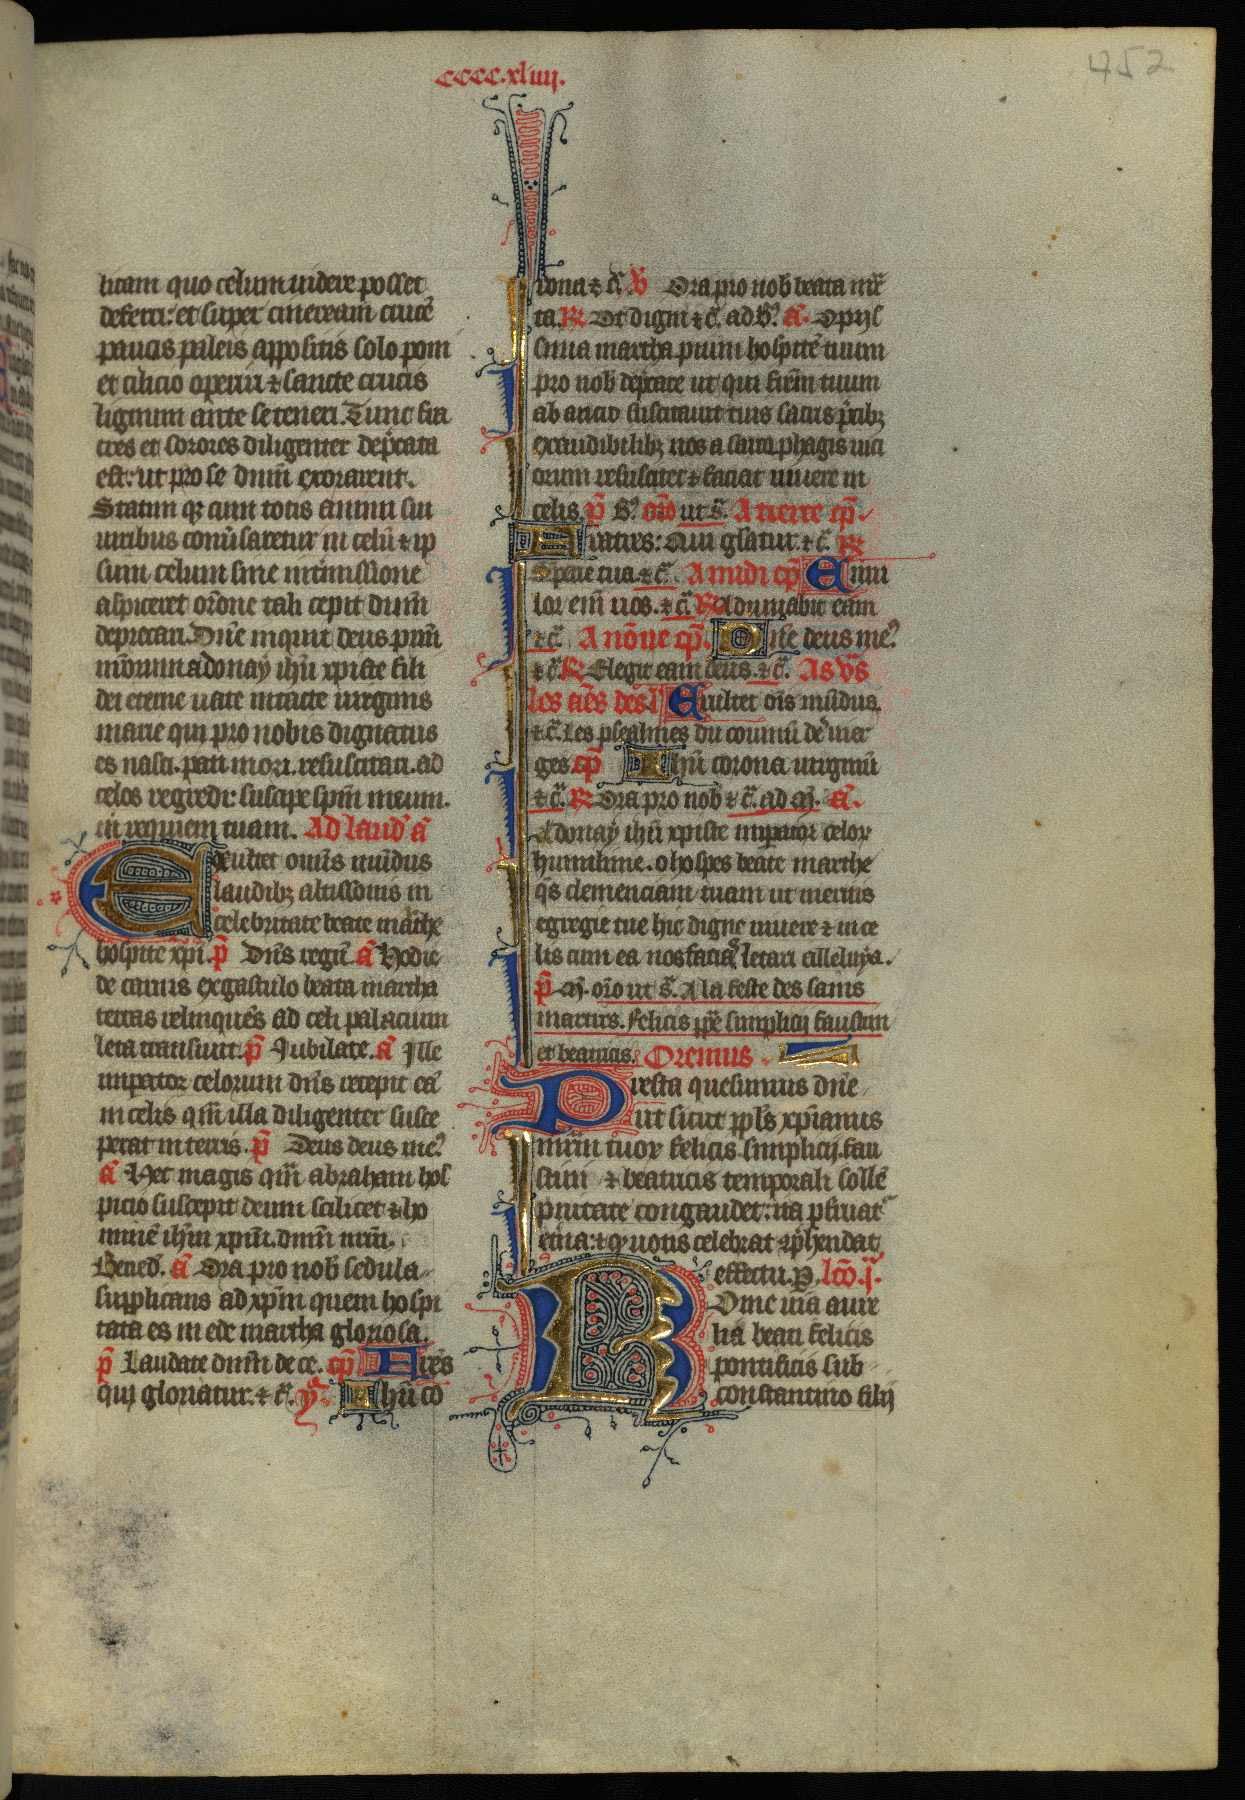 cccc.xliiij.
452
litam quo celum uidere posset
deferri: et super cineream crucē
paucis paleis appositis solo poni
et cilicio operiri ⁊ sancte crucis
lignum ante se teneri. Tunc fra
tres et sorores diligenter dep̄cata
est: ut pro se dn̄m exorarent.
Statim qꝫ cum totis animi sui
uiribus conūsaretur in celū ⁊ ip
sum celum sine int̄missione
aspiceret or̄one tali cepit dn̄m
deprecari. Dn̄e inquit deus
adonay ih̄u xpiste fili
dei eterne uate intacte uirginis
marie qui pro nobis dignatus
es nasci. pati mori. resuscitari. ad
celos regredi: suscipe sp̄m meum.
in requiem tuam. Ad laud̄ a̅
Exultet om̄is mundus
laudibꝫ altissonis in
celebritate beate marthe
hospite xp̄i. p̅ Dn̄s regn̄. a̅ Hodie
de carnis exgastulo beata martha
terras relinquēs ad celi palacium
leta transiuit. p̅ Iubilate. a̅ Ille
imp̄ator celorum dn̄s recepit eā
in celis qm̄ illa diligenter susce
perat in terris. p̅ Deus deus me⁹
a̅ Hec magis qm̄ abraham hos
picio suscepit deum scilicet ⁊ ho
minē ih̄m xp̄m. dn̄m nr̄m.
Bened̄. a̅ Ora pro nob̄ sedula
supplicans ad xp̄m quem hospi
tata es in ede martha gloriosa.
p̅ Laudate dn̄m de ce. cp̄ Fr̄es
qui gloriatur. ⁊ c̄. y̅. Ih̄u co
rona ⁊ c̄. v̄ Ora pro nob̄ beata mar̄
ta. R̄ Ut digni ⁊ c̄. ad b̄⁹. a̅. O pijs
sima martha pium hospitē tuum
pro nob̄ dep̄care ut qui fr̄em tuum
ab atrio suscitauit tuis sacris p̄cibꝫ
exaudibilibꝫ nos a sarcophagis uici
orum resuscitet ⁊ faciat uiuere in
celis. p̅ b̄⁹. or̄o ut s̄. A tierce cp̄.
Fratres: Qui gl̄atur. ⁊ c̄. R̄
Specie tua ⁊ c̄. A midi cp̄ Emu
lor em̄ uos. ⁊ c̄. R̄ Adiuuabit eam
⁊ c̄ A nōne cp̄. Dn̄e deus me⁹
⁊ c̄. R̄ Elegit eam deus. ⁊ c̄. As v̄s
les an̄es des l̄ Exultet om̄s mūdus.
⁊ c̄. Les psealmes du coumū de vier
ges. cp̄ Ih̄u corona uirginū
⁊ c̄. R̄ Ora pro nob̄ ⁊ c̄. ad m̄. a̅.
Adonay ih̄u xpiste imperator celoꝝ
humilime. o hospes beate marthe
q̄s clemenciam tuam ut meritis
egregie tue hic digne uiuere ⁊ in ce
lis cum ea nos facias letari alleluya.
p̅ m̄. or̄o ut s̄. A la feste des sains
martirs. felicis p̄pe simplicij faustini
et beatricis. Oremus.
Presta quesumus dn̄e
ut sicut ppl̄s xp̄ianus
mr̄um tuoꝝ felicis simplicij. fau
stini ⁊ beatricis temporali sollē
pnitate congaudet: ita p̄fruat̄
et̄na: ⁊ qd̄ uotis celebrat cōp̄hendat
effectu. P̱. lcō. j̄.
Rome uia aure
lia beati felicis
pontificis sub
constantino filij